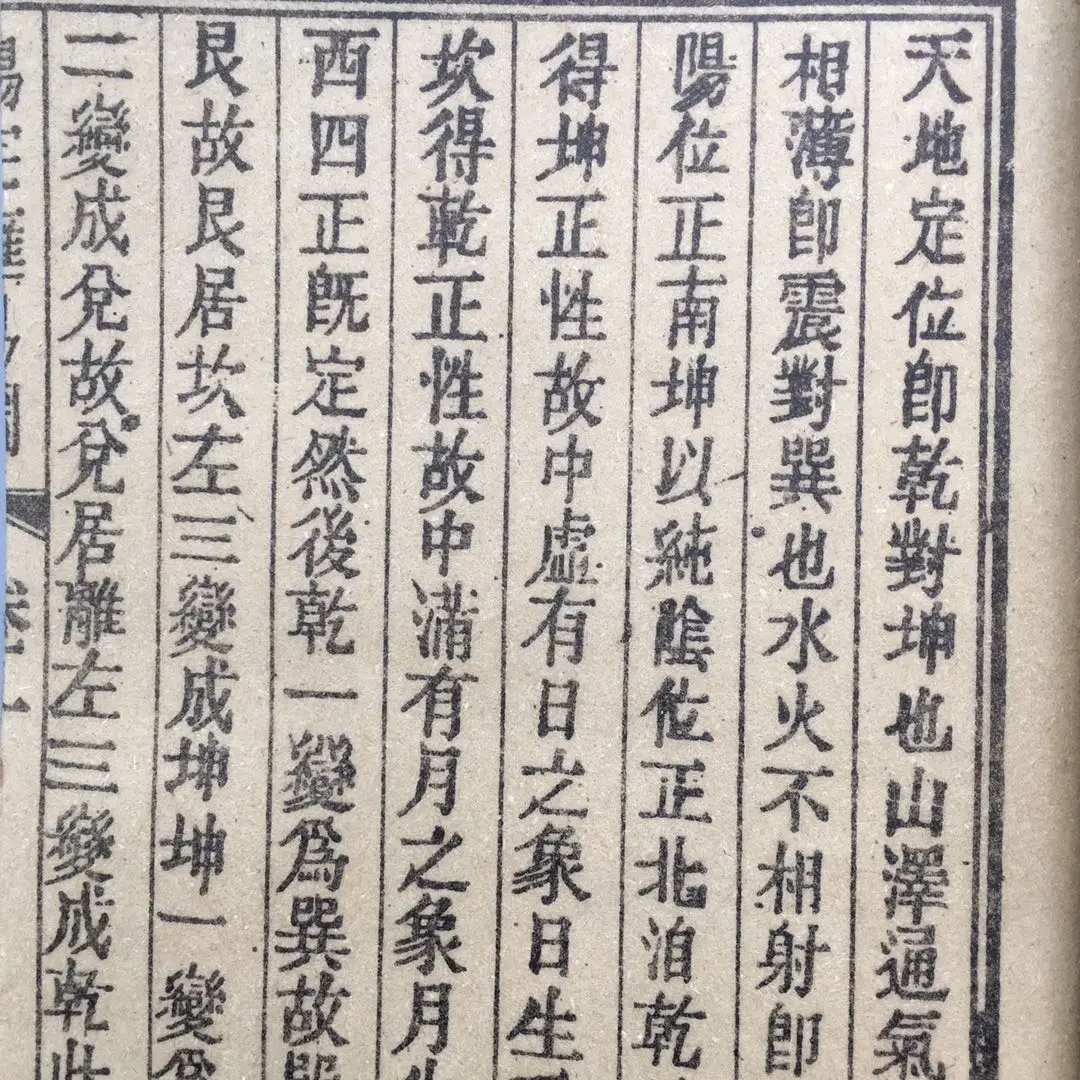 天地定位卽乾對坤也山澤通氣
相薄卽震對巽也水火不相射卽
陽位正南坤以純陰位正北洎乾
得坤正性故中虛有日之象日生
坎得乾正性故中滿有月之象月生
酉四正旣定然後乾一變爲巽故巽
艮故艮居坎左三變成坤坤一變爲
二變成兌故兌居離左三變成乾此